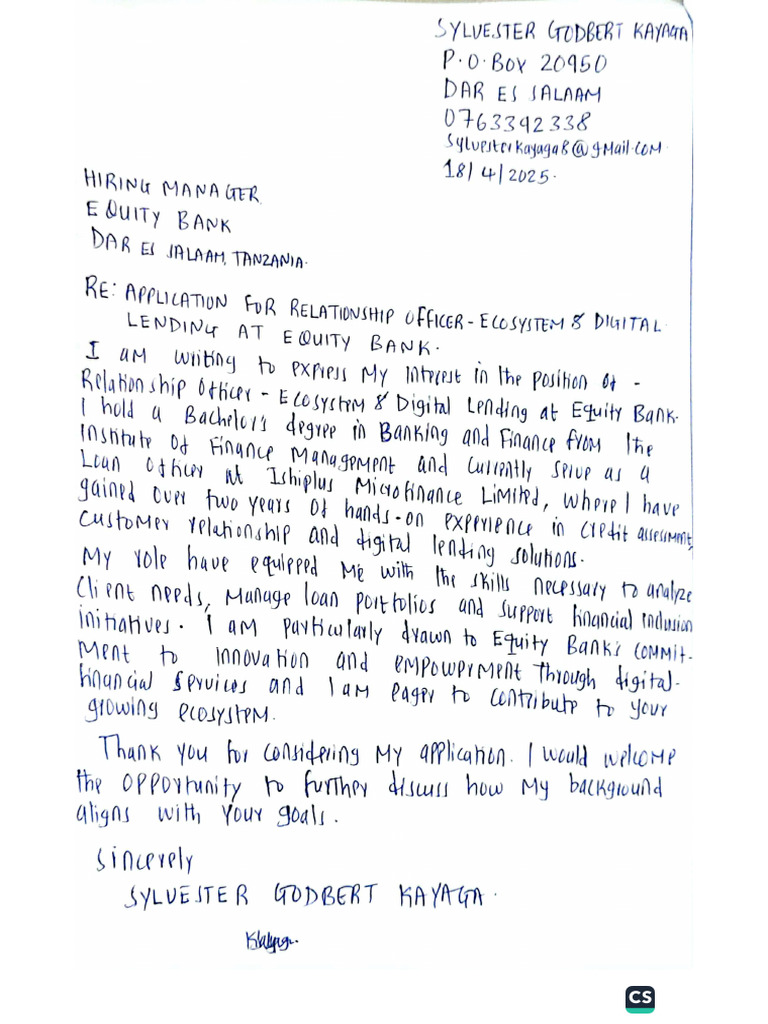 SYLVESTER GODBERT KAYAGA
P.O.BOX 20950
DAR ES SALAAM
0763392338
Sylvesterkayaga8@gmail.com
18/4/2025.
HIRING MANAGER
EQUITY BANK
DAR ES SALAAM, TANZANIA.
RE: APPLICATION FOR RELATIONSHIP OFFICER - ECOSYSTEM & DIGITAL
LENDING AT EQUITY BANK.
I am writing to express my interest in the position of -
Relationship Officer - Ecosystem & Digital Lending at Equity Bank.
I hold a Bachelor's degree in Banking and Finance from the
Institute of Finance Management and currently serve as a
Loan Officer at Ishiplus Microfinance Limited, where I have
gained over two years of hands-on experience in credit assessment,
customer relationship and digital lending solutions.
My role have equipped me with the skills necessary to analyze
client needs, manage loan portfolios and support financial inclusion
initiatives. I am particularly drawn to Equity Bank's commit-
ment to innovation and empowerment through digital-
financial services and I am eager to contribute to your
growing ecosystem.
Thank you for considering my application. I would welcome
the opportunity to further discuss how my background
aligns with your goals.
Sincerely
SYLVESTER GODBERT KAYAGA.
CS